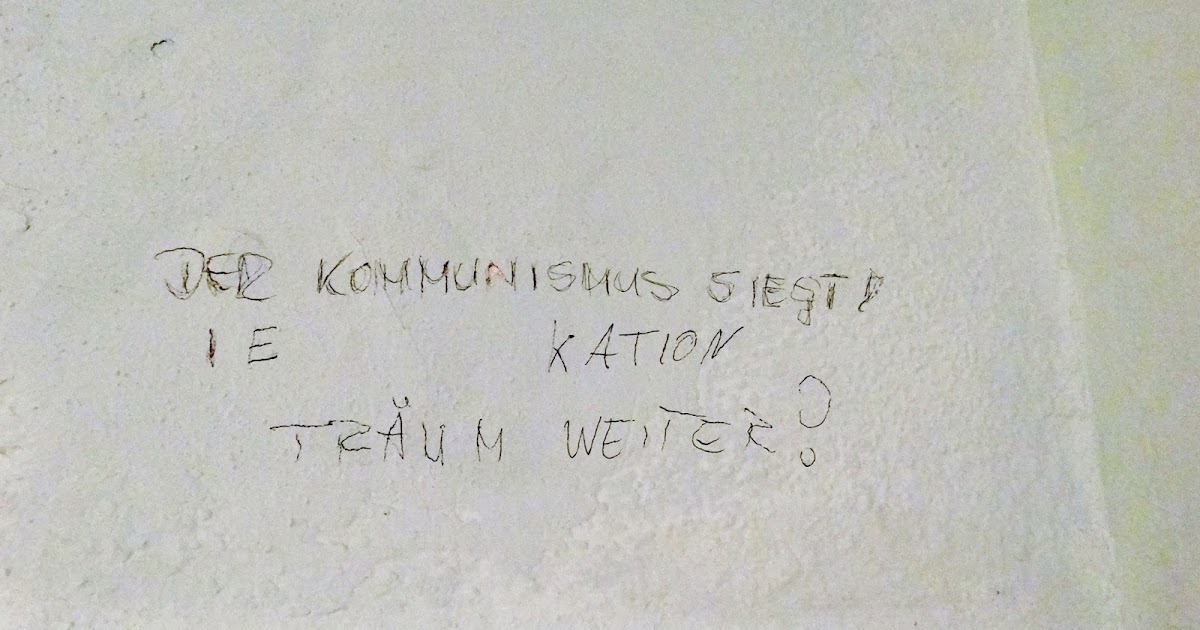 DER KOMMUNISMUS SIEGT!
IE KATION
TRÄUM WEITER!